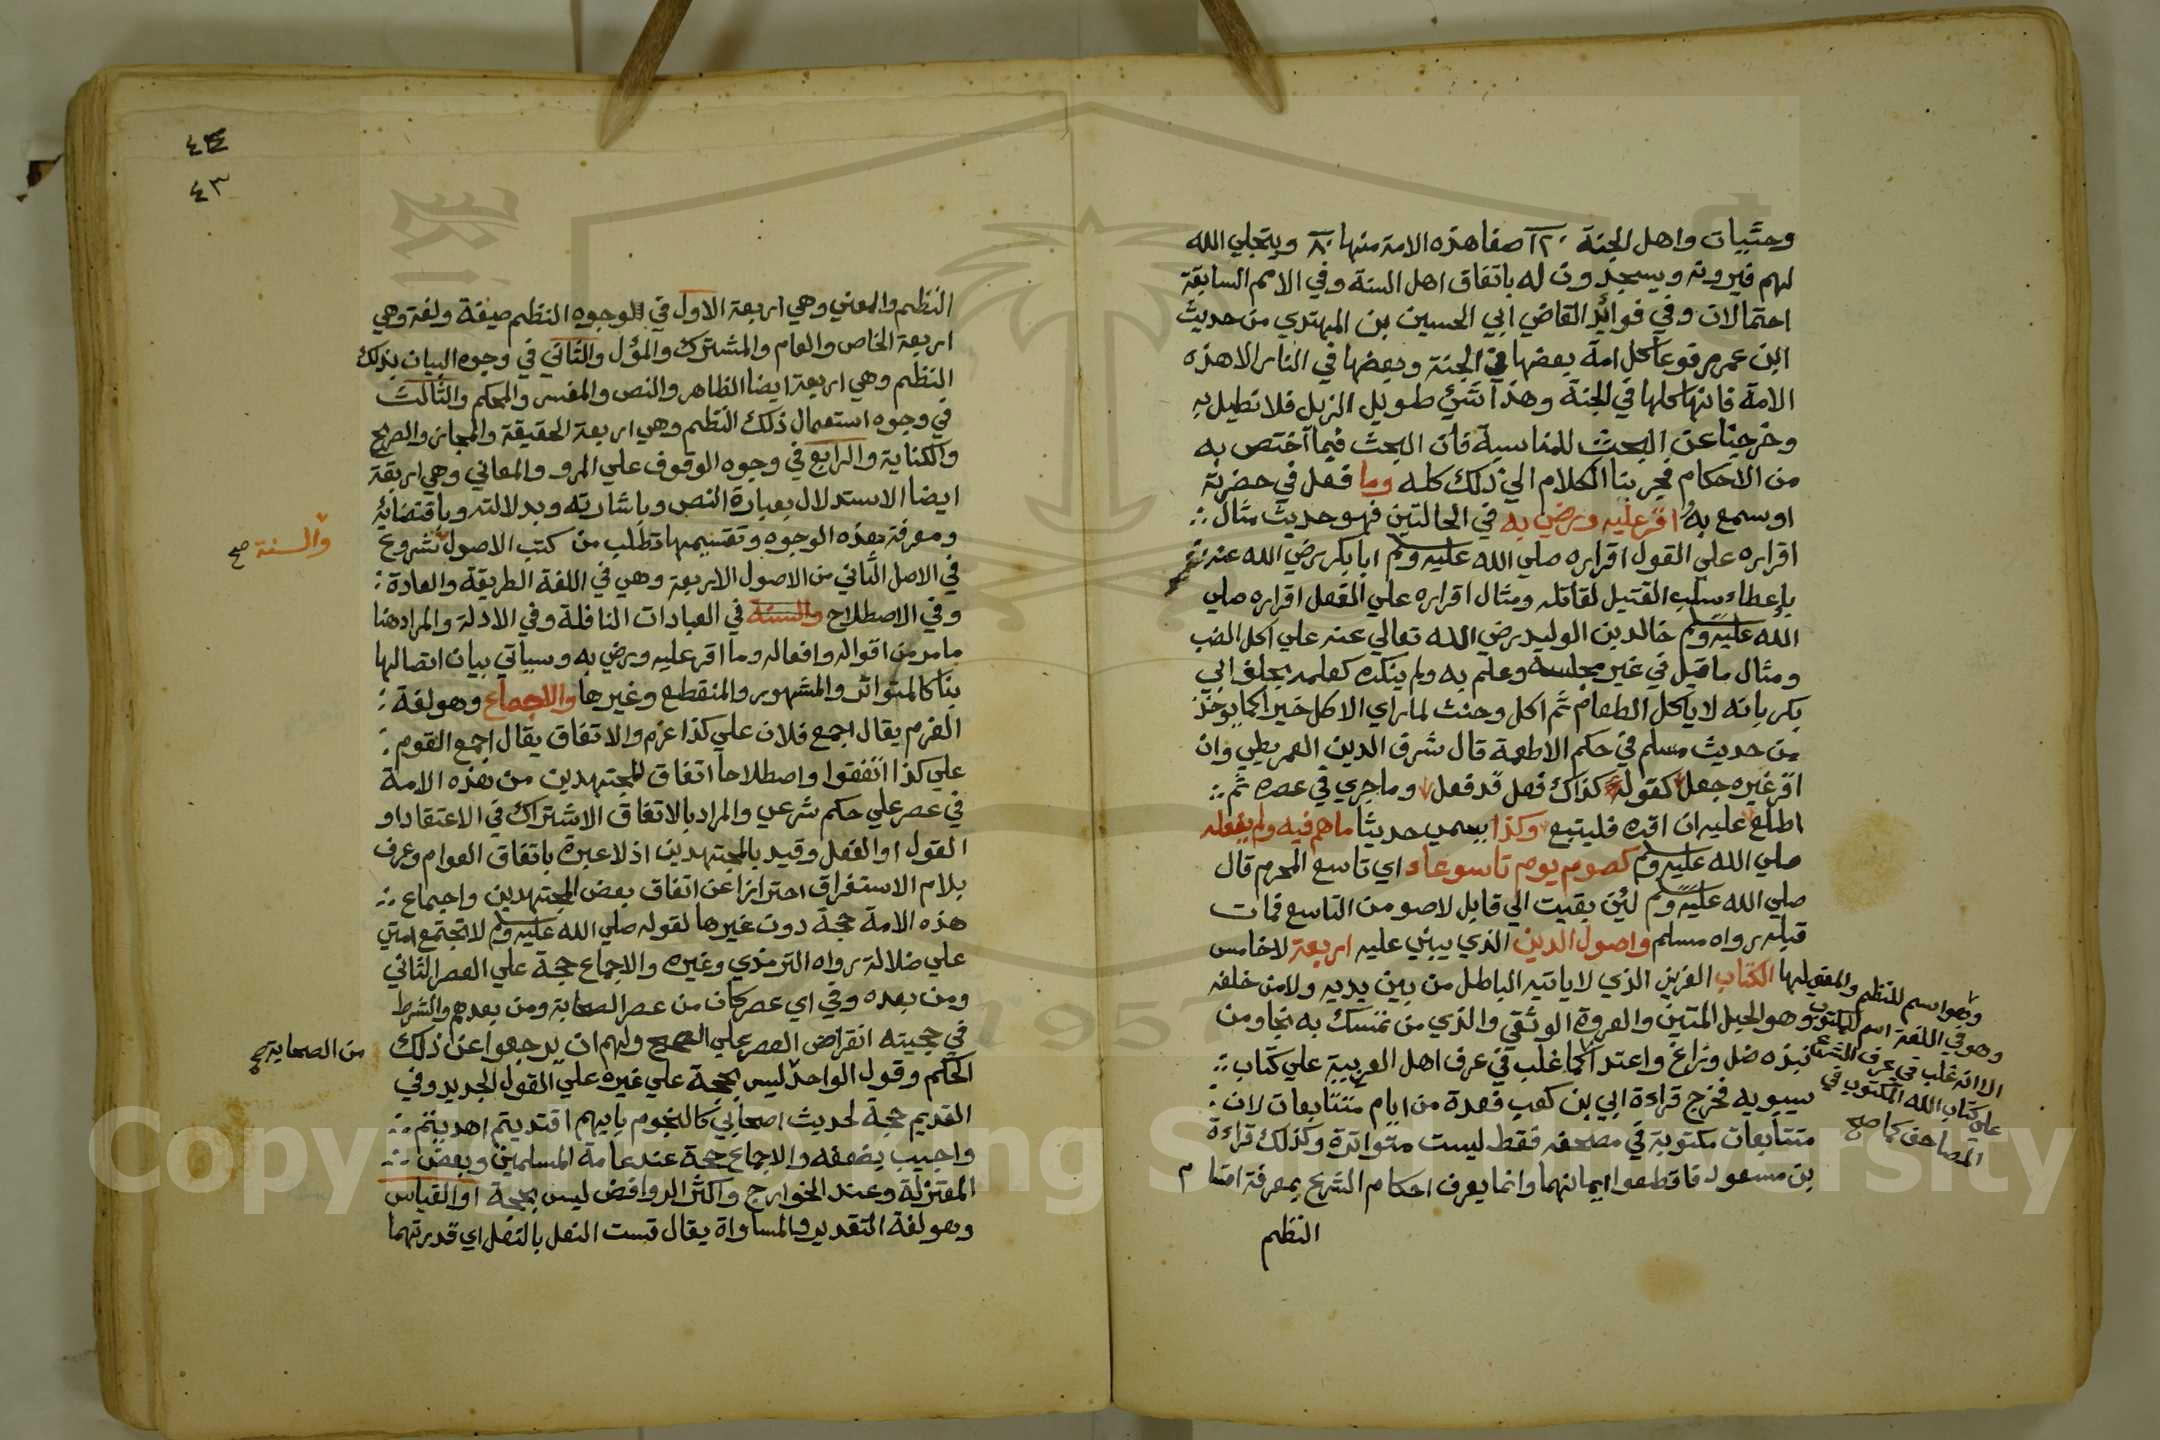 وحثيات واهل الجنة ١٢٠ صفا هذه الامة منها ٨٠ ويتجلي الله
لهم فيرونه ويسجدون له باتفاق اهل السنة وفي الامم السابقة
احتمالان وفي فوائد القاضي ابي الحسين بن المهتدي من حديث
ابن عمر مرفوعا كل امة بعضها في الجنة وبعضها في النار الا هذه
الامة فانها كلها في الجنة وهذا شئ طويل الذيل فلا نطيل به
وخرجنا عن البحث للمناسبة فان البحث فيما اختص به
من الاحكام فجر بنا الكلام الي ذلك كله وما فعل في حضرته
او سمع به و اقر عليه ورضي به في الحالتين فهو حديث مثال
اقراره علي القول اقراره صلي الله عليه وسلم ابا بكر رضي الله عنه
باعطاء سلب القتيل لقاتله ومثال اقراره علي الفعل اقراره صلي
الله عليه وسلم خالد بن الوليد رضي الله تعالي عنه علي اكل الضب
ومثال ما قيل في غير مجلسه وعلم به ولم ينكره كعلمه بحلف ابي
بكر بانه لا ياكل الطعام ثم اكل وحنث لما راي الاكل خيرا كما يوخذ
من حديث مسلم في حكم الاطعمة قال شرف الدين العمريطي وان
اقر غيره جعل كقوله كذاك فعل قد فعل وما جري في عصره ثم
اطلع عليه ان اقره فليتبع وكذا يسمي حديثا ما هم فيه ولم يفعله
صلي الله عليه وسلم كصوم يوم تاسوعاء اي تاسع المحرم قال
صلي الله عليه وسلم لئن بقيت الي قابل لاصومن التاسع فمات
قبله رواه مسلم واصول الدين الذي يبني عليه اربعة لا خامس
لها الكتاب العزيز الذي لا ياتيه الباطل من بين يديه ولا من خلفه
وهو الحبل المتين والعروة الوثقي والذي من تمسك به نجا ومن
نبذه ضل وزاغ واعتدا كما غلب في عرف اهل العربية علي كتاب
سيبويه فخرج قراءة ابي بن كعب فعدة من ايام متتابعات لان
متتابعات مكتوبة في مصحفه فقط ليست متواترة وكذلك قراءة
بن مسعود فاقطعوا ايمانهما وانما يعرف احكام الشرع بمعرفة اقسام
النظم
وهو اسم للنظم والمعني
وهو في اللغة اسم للمكتوب
الا انه غلب في عرف الشرع
علي كتاب الله المكتوب في
المصاحف كما صح
٤٤
٤٣
النظم والمعني وهي اربعة الاول في الوجوه النظم صيغة ولغة وهي
اربعة الخاص والعام والمشترك والمؤل والثاني في وجوه البيان بذلك
النظم وهي اربعة ايضا الظاهر والنص والمفسر والمحكم والثالث
في وجوه استعمال ذلك النظم وهي اربعة الحقيقة والمجاز والصريح
والكناية والرابع في وجوه الوقوف علي المرو والمعاني وهي اربعة
ايضا الاستدلال بعبارة النص وباشارته وبدلالته وباقتضائه
ومعرفة هذه الوجوه وتقسيمها تطلب من كتب الاصول شروع
والسنة صح
في الاصل الثاني من الاصول الاربعة وهي في اللغة الطريقة والعادة
وفي الاصطلاح والسنة في العبادات النافلة وفي الادلة والمراد هنا
ما مر من اقواله وافعاله وما اقر عليه ورضي به وسياتي بيان اتصالها
بنا كالمتواتر والمشهور والمنقطع وغيرها والاجماع وهو لغة
العزم يقال اجمع فلان علي كذا عزم والاتفاق يقال اجمع القوم
علي كذا اتفقوا واصطلاحا اتفاق المجتهدين من هذه الامة
في عصر علي حكم شرعي والمراد بالاتفاق الاشتراك في الاعتقاد او
القول او الفعل وقيد بالمجتهدين اذ لا عبرة باتفاق العوام وعرف
بلام الاستغراق احترازا عن اتفاق بعض المجتهدين واجماع
هذه الامة حجة دون غيرها لقوله صلي الله عليه وسلم لا تجتمع امتي
علي ضلالة رواه الترمذي وغيره والاجماع حجة علي العصر الثاني
ومن بعده وفي اي عصر كان من عصر الصحابة ومن بعدهم والشرط
في حجيته انقراض العصر علي الصحيح ولهم ان يرجعوا عن ذلك
من الصحابة صح
الحكم وقول الواحد ليس بحجة علي غيره علي القول الجديد وفي
القديم حجة لحديث اصحابي كالنجوم بايهم اقتديتم اهديتم
واجيب بضعفه والاجماع حجة عند عامة المسلمين وبعض
المعتزلة وعند الخوارج واكثر الروافض ليس بحجة او القياس
وهو لغة التقدير والمساواة يقال قست النعل بالنعل اي قدرتهما
Copyright © King Saud University
1957